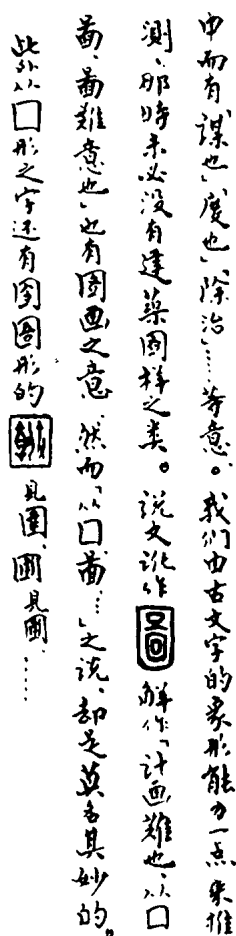 申而有「謀也」「度也」「除治」……等意。我們由古文字的象形能力一点來推
測、那時未必没有建築圖樣之类。説文訛作圖解作「計画難也、从囗
啚、啚難意也」也有圖画之意 然而「从囗啚…」之説、却是莫名其妙的。
此外从囗形之字还有囹圄形的 見圉、圃見圃……